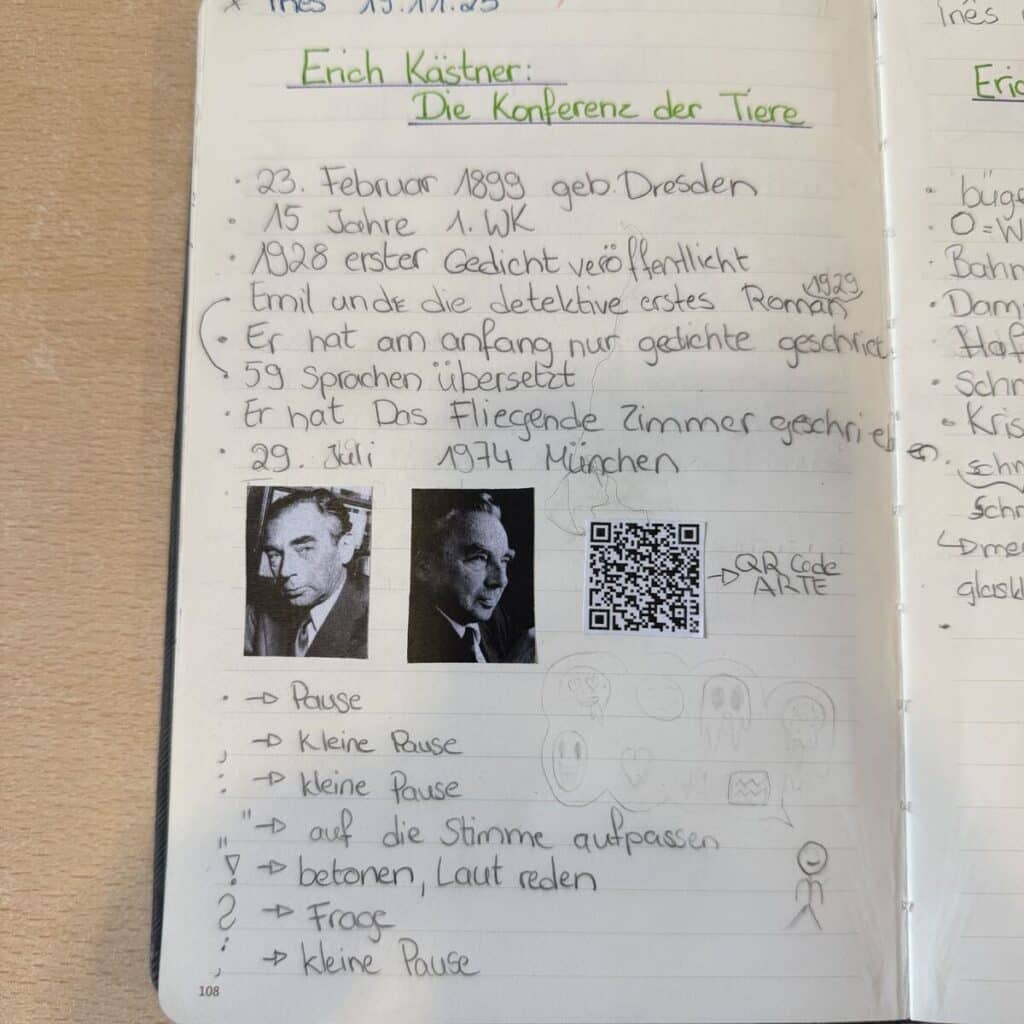 * Inês 19.11.25
Erich Kästner:
Die Konferenz der Tiere
· 23. Februar 1899 geb. Dresden
· 15 Jahre 1. WK
· 1928 erster Gedicht veröffentlicht
1929
Emil und die detektive erstes Roman
· Er hat am anfang nur gedichte geschrieb
· 59 Sprachen übersetzt
· Er hat Das Fliegende Zimmer geschrieben
· 29. Juli 1974 München
→ QR Code
ARTE
. → Pause
, → kleine Pause
: → kleine Pause
„ " → auf die Stimme aufpassen
! → betonen, Laut reden
? → Frage
; → kleine Pause
108
Inês
Eric
· büge
· O = W
· Bahn
· Dam
· Haf
· Schn
· Kris
· schn
Schn
↳ me
glask